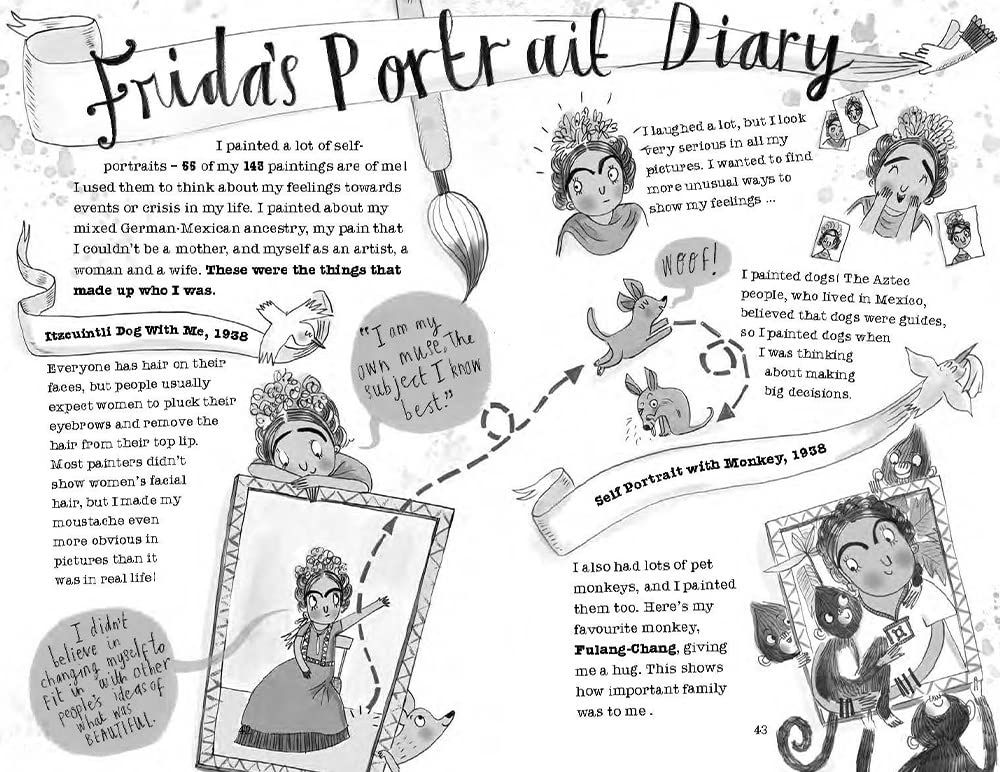 Frida's Portrait Diary
I painted a lot of self-
portraits – 55 of my 143 paintings are of me!
I used them to think about my feelings towards
events or crisis in my life. I painted about my
mixed German-Mexican ancestry, my pain that
I couldn't be a mother, and myself as an artist, a
woman and a wife. These were the things that
made up who I was.
Itzcuintli Dog With Me, 1938
Everyone has hair on their
faces, but people usually
expect women to pluck their
eyebrows and remove the
hair from their top lip.
Most painters didn't
show women's facial
hair, but I made my
moustache even
more obvious in
pictures than it
was in real life!
"I am my
own muse, the
subject I know
best."
I didn't
believe in
changing myself to
fit in with other
people's ideas of
what was
BEAUTIFUL.
42
I laughed a lot, but I look
very serious in all my
pictures. I wanted to find
more unusual ways to
show my feelings ...
WOOF!
I painted dogs! The Aztec
people, who lived in Mexico,
believed that dogs were guides,
so I painted dogs when
I was thinking
about making
big decisions.
Self Portrait with Monkey, 1938
I also had lots of pet
monkeys, and I painted
them too. Here's my
favourite monkey,
Fulang-Chang, giving
me a hug. This shows
how important family
was to me .
43